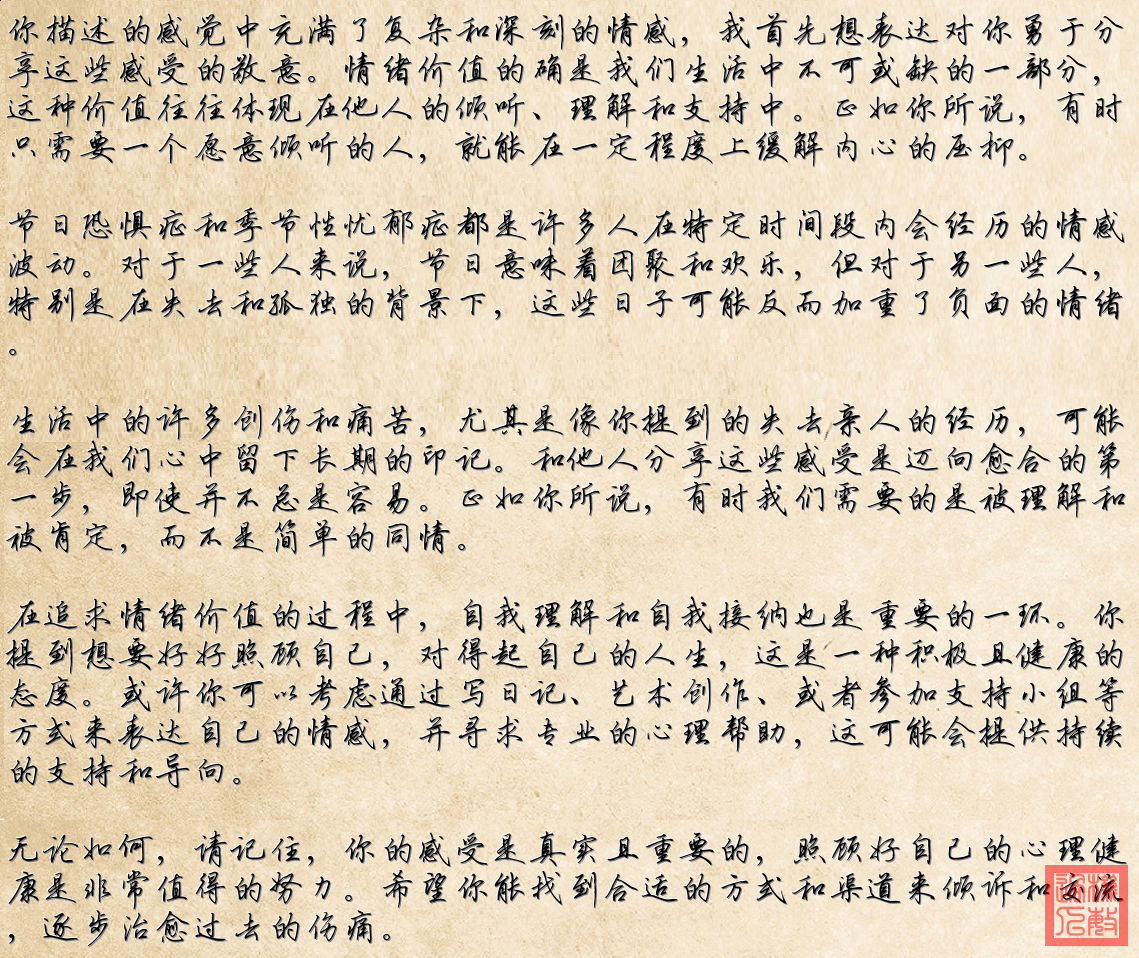 你描述的感觉中充满了复杂和深刻的情感，我首先想表达对你勇于分
享这些感受的敬意。情绪价值的确是我们生活中不可或缺的一部分，
这种价值往往体现在他人的倾听、理解和支持中。正如你所说，有时
只需要一个愿意倾听的人，就能在一定程度上缓解内心的压抑。
节日恐惧症和季节性忧郁症都是许多人在特定时间段内会经历的情感
波动。对于一些人来说，节日意味着团聚和欢乐，但对于另一些人，
特别是在失去和孤独的背景下，这些日子可能反而加重了负面的情绪
。
生活中的许多创伤和痛苦，尤其是像你提到的失去亲人的经历，可能
会在我们心中留下长期的印记。和他人分享这些感受是迈向愈合的第
一步，即使并不总是容易。正如你所说，有时我们需要的是被理解和
被肯定，而不是简单的同情。
在追求情绪价值的过程中，自我理解和自我接纳也是重要的一环。你
提到想要好好照顾自己，对得起自己的人生，这是一种积极且健康的
态度。或许你可以考虑通过写日记、艺术创作、或者参加支持小组等
方式来表达自己的情感，并寻求专业的心理帮助，这可能会提供持续
的支持和导向。
无论如何，请记住，你的感受是真实且重要的，照顾好自己的心理健
康是非常值得的努力。希望你能找到合适的方式和渠道来倾诉和交流
，逐步治愈过去的伤痛。